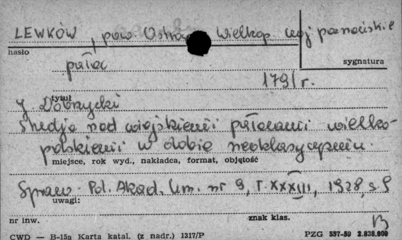 LEWKÓW, pow. Ostrów Wielkop. woj poznańskie
hasło
sygnatura
pałac
1791 r.
tytuł
J Dobrzycki
Studja nad wiejskiemi pałacami wielko-
polskiemi w dobie neoklasycyzmu.
miejsce, rok wyd., nakładca, format, objętość
Spraw. Pol. Akad. Um. nr 9, T. XXXIII, 1928, s 9
uwagi:
nr inw.
znak klas.
B
CWD — B-15a Karta katal. (z nadr.) 1217/P
PZG 557-59 2.828.000